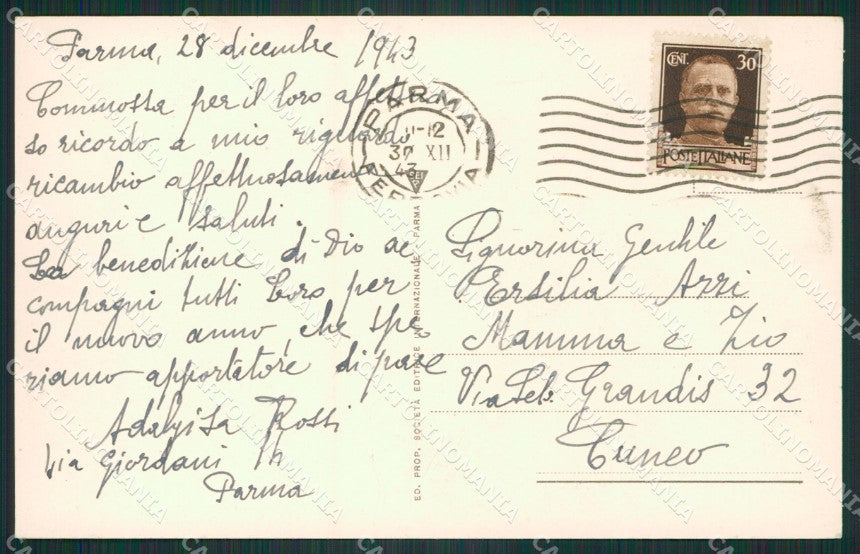 Parma, 28 dicembre 1943
Commossa per il loro affettuo
so ricordo a mio riguardo,
ricambio affettuosamente
auguri e saluti.
La benedizione di Dio ac
compagni tutti Loro per
il nuovo anno, che spe
riamo apportatore di pace
Adalgisa Rossi
Via Giordani
Parma
PARMA
11-12
30 XII
43
FERROVIA
CENT. 30
POSTE ITALIANE
Signorina Gentile
Ersilia Azzi
Mamma e Zio
Via Seb. Grandis 32
Cuneo
ED. PROP. SOCIETÀ EDITRICE INTERNAZIONALE - PARMA
CARTOLINOMANIA